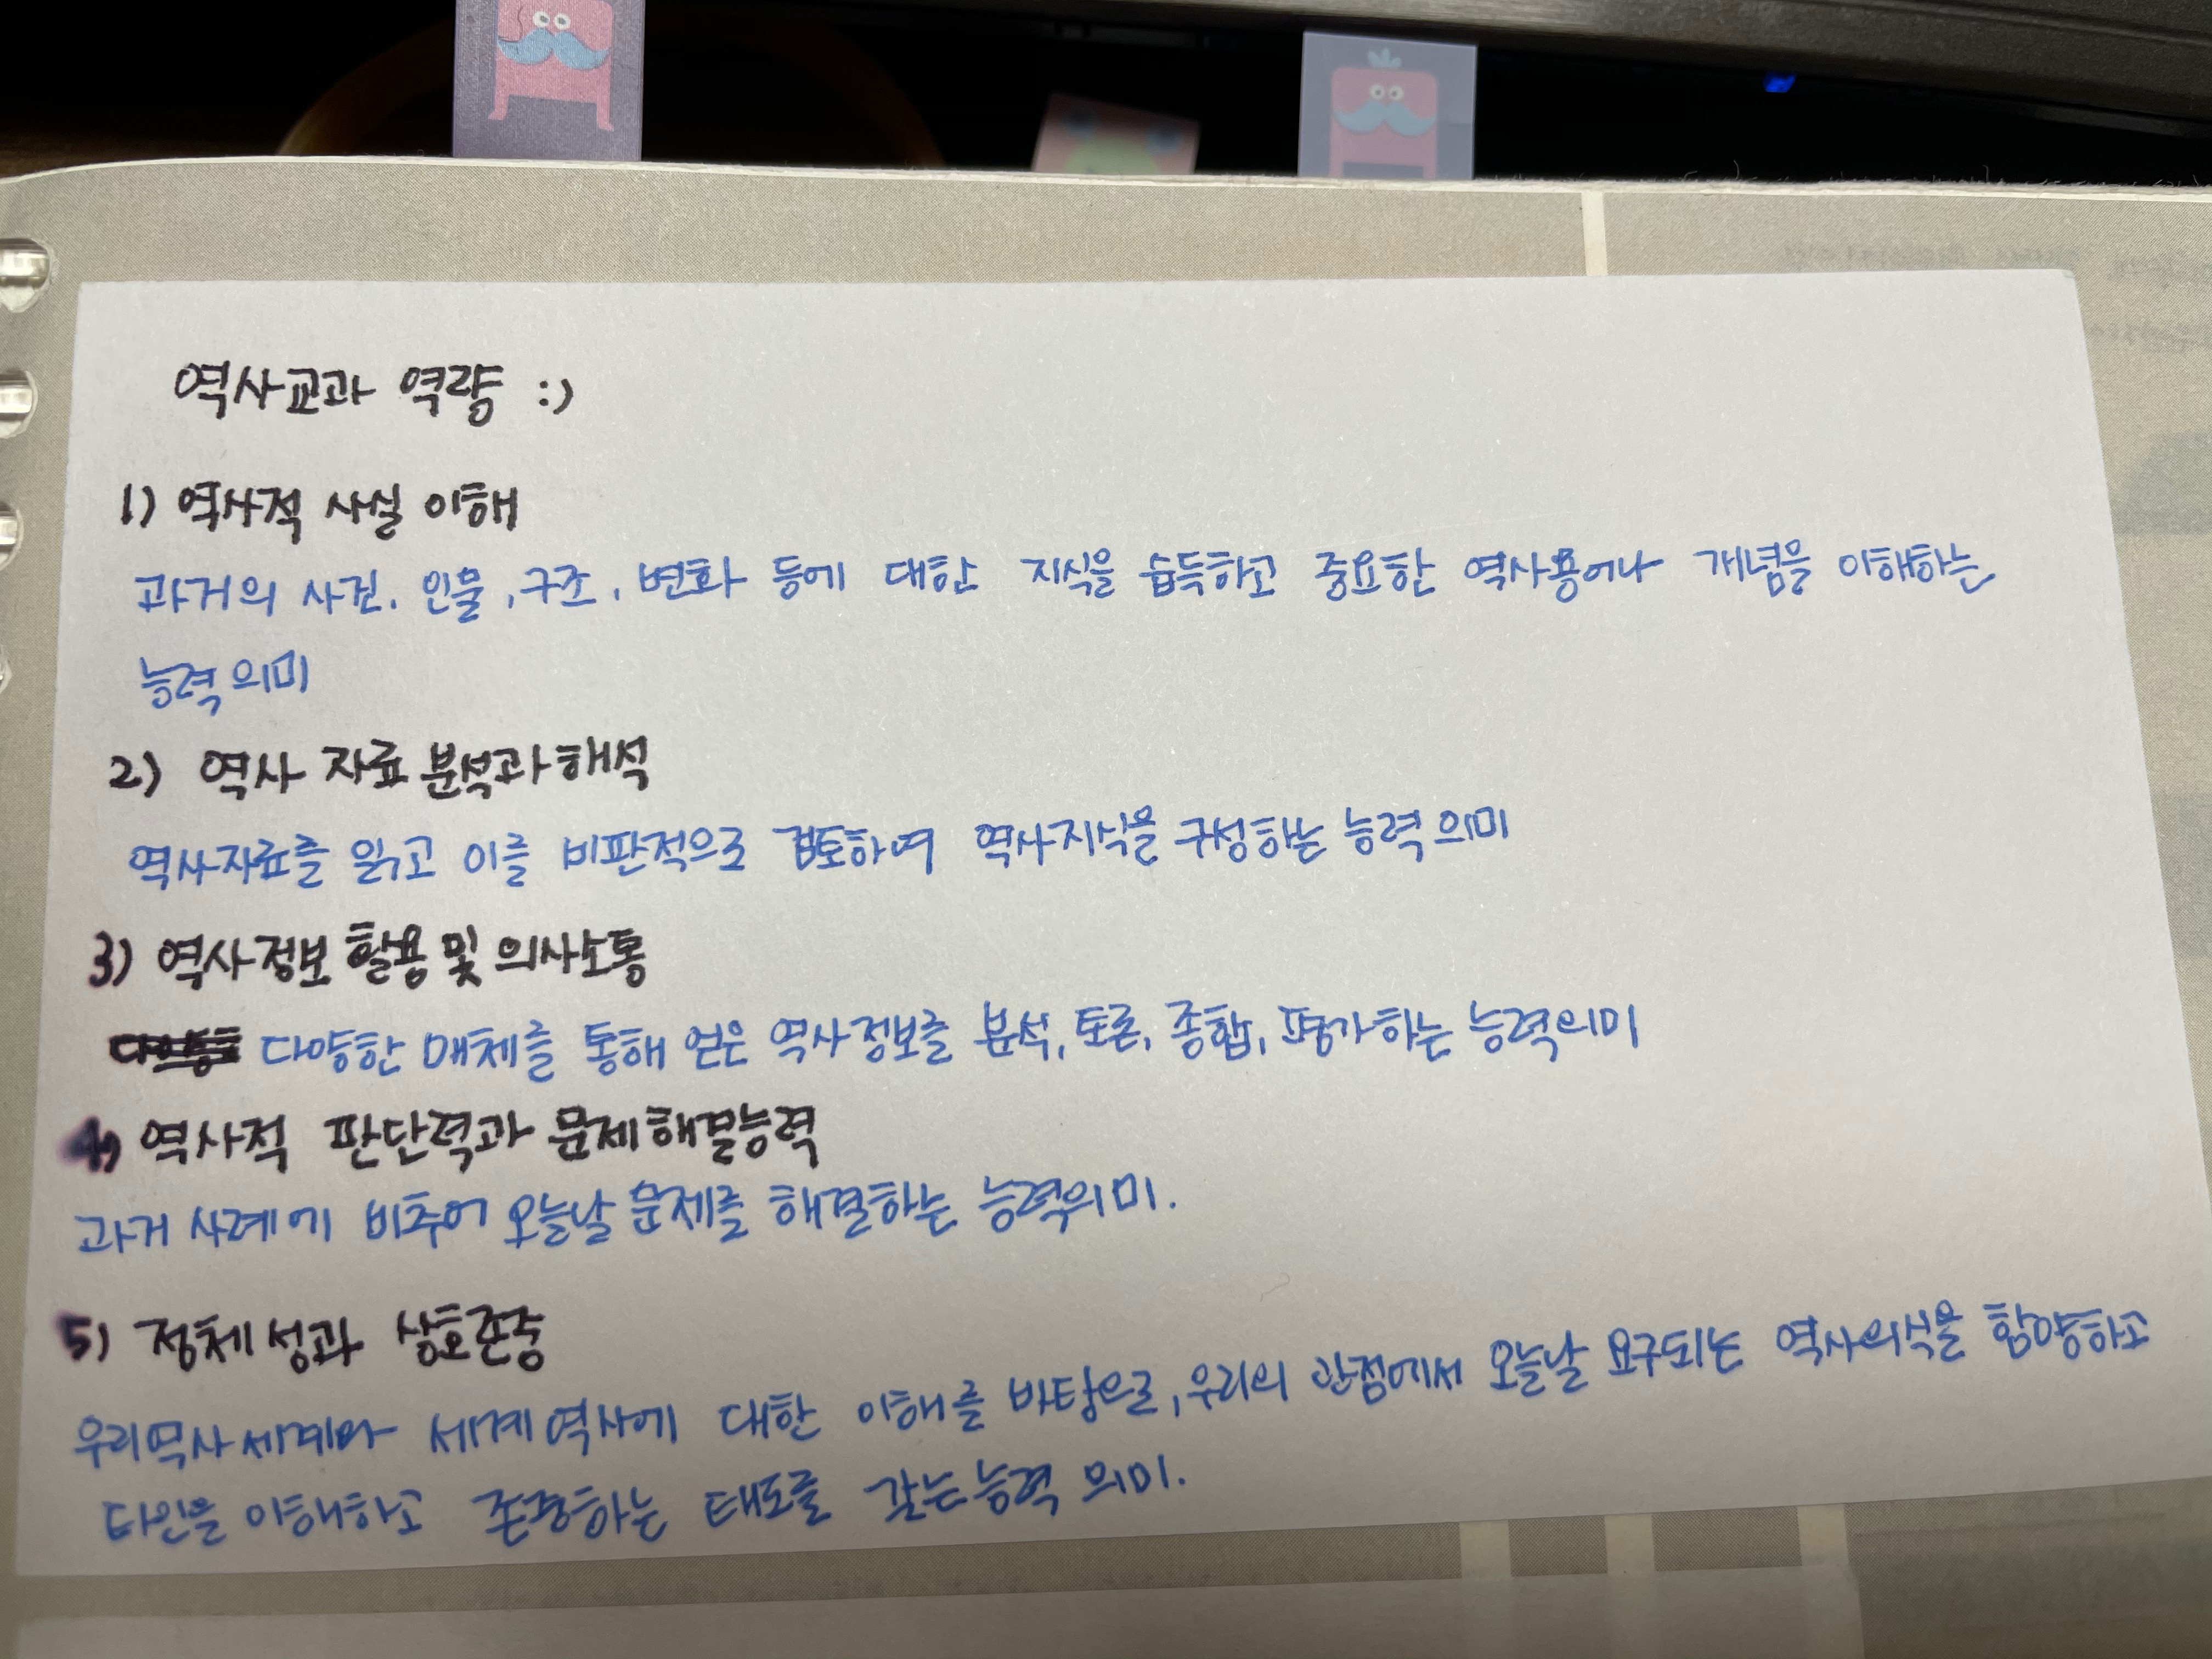 역사교과 역량 :)
1) 역사적 사실 이해
과거의 사건, 인물, 구조, 변화 등에 대한 지식을 습득하고 중요한 역사용어나 개념을 이해하는
능력 의미
2) 역사 자료 분석과 해석
역사자료를 읽고 이를 비판적으로 검토하여 역사지식을 구성하는 능력 의미
3) 역사정보 활용 및 의사소통
다양한 매체를 통해 얻은 역사정보를 분석, 토론, 종합, 평가하는 능력의미
4) 역사적 판단력과 문제해결능력
과거 사례에 비추어 오늘날 문제를 해결하는 능력의미.
5) 정체성과 상호존중
우리역사세계와 세계역사에 대한 이해를 바탕으로, 우리의 관점에서 오늘날 요구되는 역사의식을 함양하고
타인을 이해하고 존중하는 태도를 갖는능력 의미.